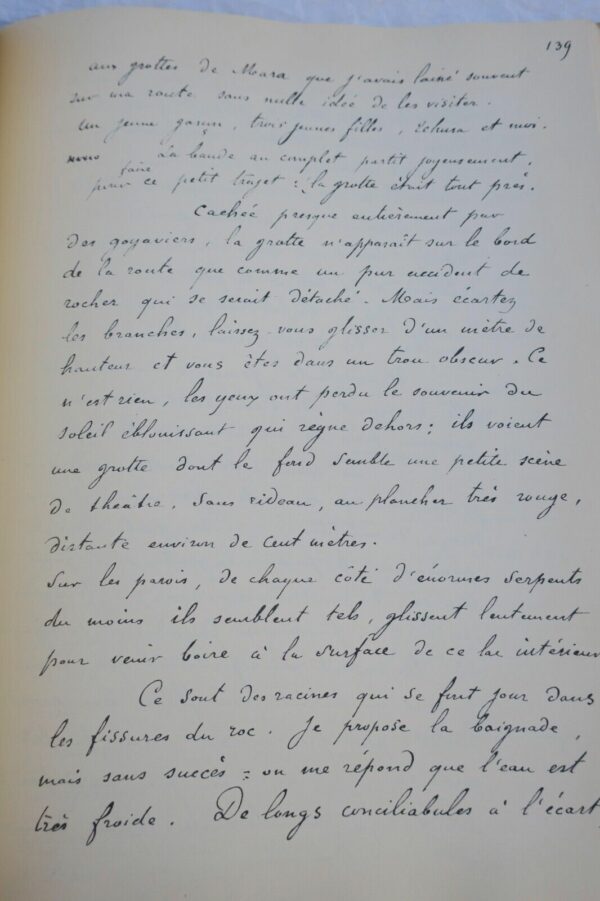 139
aux grottes de Mara que j'avais laissé souvent
sur ma route sans nulle idée de les visiter.
un jeune garçon, trois jeunes filles, Tehura et moi.
La bande au complet partit joyeusement,
faire
pour ce petit trajet : la grotte était tout près.
Cachée presque entièrement par
des goyaviers, la grotte n'apparaît sur le bord
de la route que comme un pur accident de
rocher qui se serait détaché. Mais écartez
les branches, laissez-vous glisser d'un mètre de
hauteur et vous êtes dans un trou obscur. Ce
n'est rien, les yeux ont perdu le souvenir du
soleil éblouissant qui règne dehors ; ils voient
une grotte dont le fond semble une petite scène
de théâtre, sans rideau, au plancher très rouge,
distante environ de cent mètres.
Sur les parois, de chaque côté d'énormes serpents
du moins ils semblent tels, glissent lentement
pour venir boire à la surface de ce lac intérieur
Ce sont des racines qui se font jour dans
les fissures du roc. Je propose la baignade,
mais sans succès = on me répond que l'eau est
très froide. De longs conciliabules à l'écart